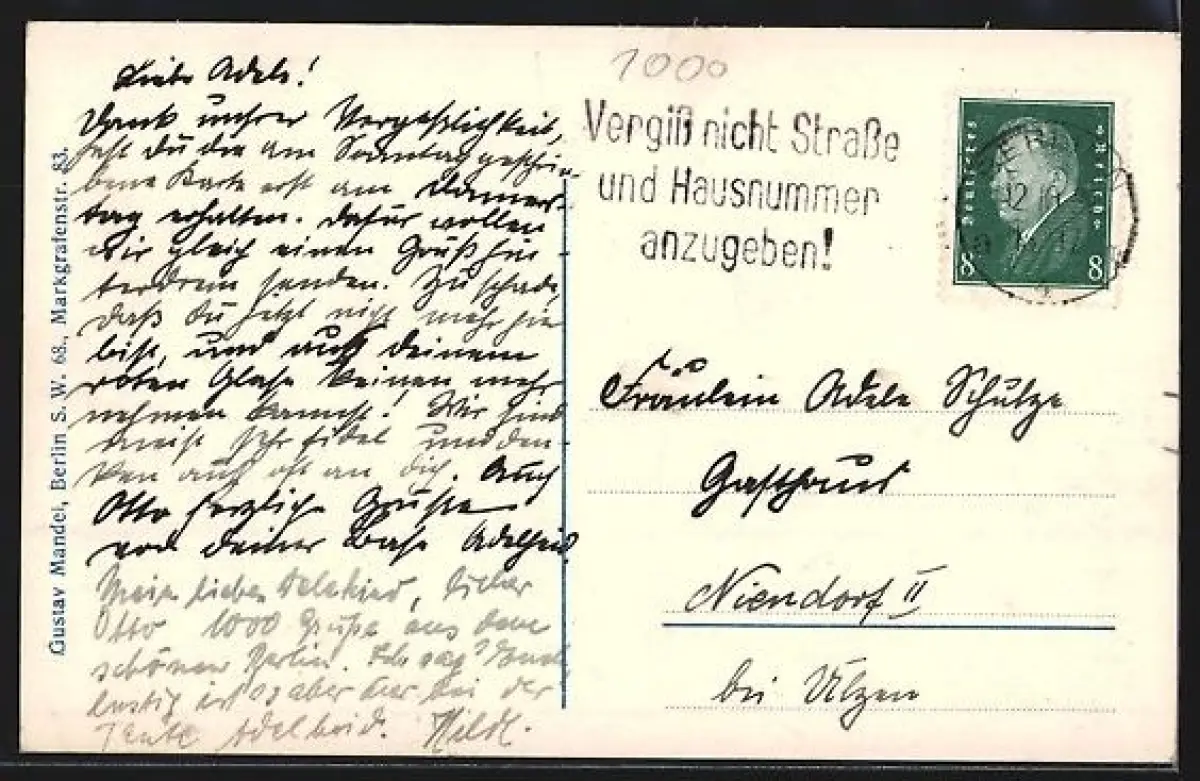 Liebe Adele!
Dank unsrer Vergeßlichkeit,
hast Du die am Sonntag geschrie-
bene Karte erst am Donners-
tag erhalten. Dafür wollen
wir gleich einen Gruß hin-
terdrein senden. Zu schade,
daß Du jetzt nicht mehr hier
bist, und auch Deinem
roten Glase keinen mehr
nehmen kannst! Wir sind
meist sehr fidel und den-
ken auch oft an Dich. Auch
Otto herzliche Grüße
von Deiner Base Adelheid.
Mein liebes Delekind, lieber
Otto 1000 Grüße aus dem
schönen Berlin. Ich sag' Euch,
lustig ist es aber hier bei der
Tante Adelheid. Hilde.
Gustav Mandel, Berlin S. W. 68., Markgrafenstr. 83.
1000
Vergiß nicht Straße
und Hausnummer
anzugeben!
Deutsches Reich
8 8
BERLIN
Fräulein Adele Schulze
Gasthaus
Niendorf II
bei Ülzen